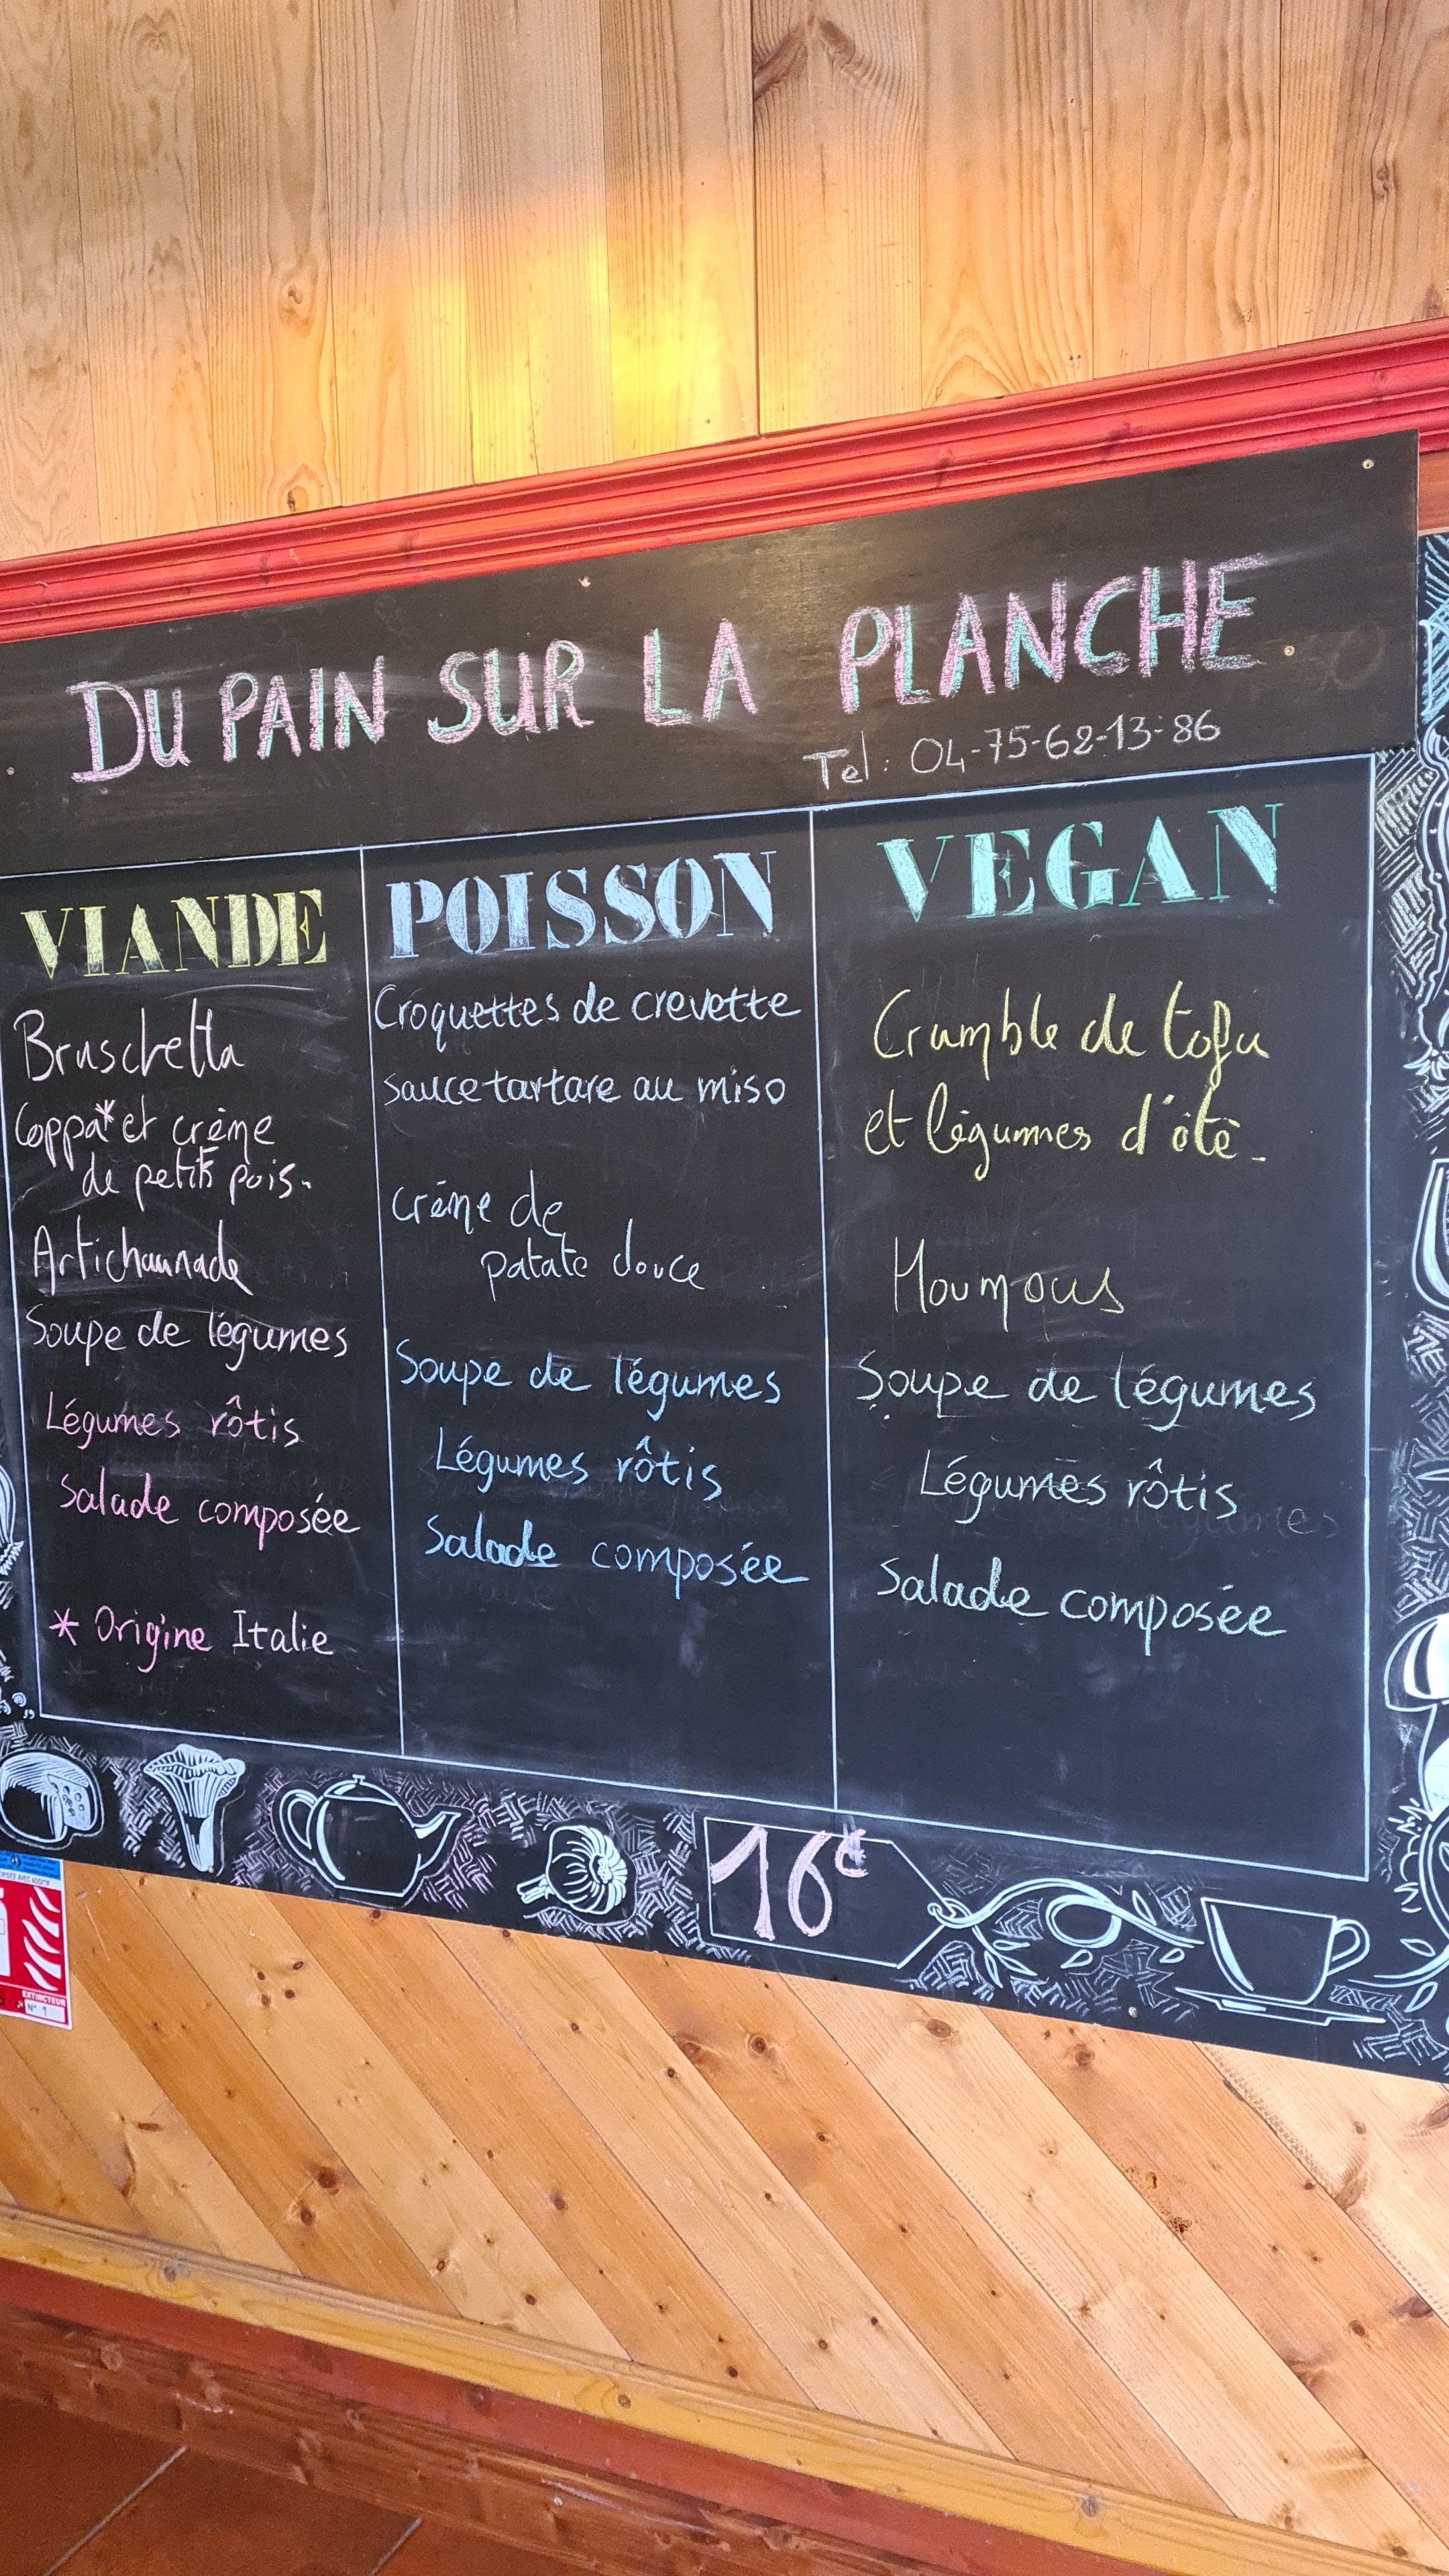 DU PAIN SUR LA PLANCHE
Tel : 04-75-62-13-86
VIANDE
Bruschetta
Coppa* et crème
de petits pois.
Artichaunade
Soupe de légumes
Légumes rôtis
Salade composée
* Origine Italie
POISSON
Croquettes de crevette
sauce tartare au miso
Crème de
patate douce
Soupe de légumes
Légumes rôtis
Salade composée
VEGAN
Crumble de tofu
et légumes d'été.
Houmous
Soupe de légumes
Légumes rôtis
Salade composée
16€
EXTINCTEUR
N° 1